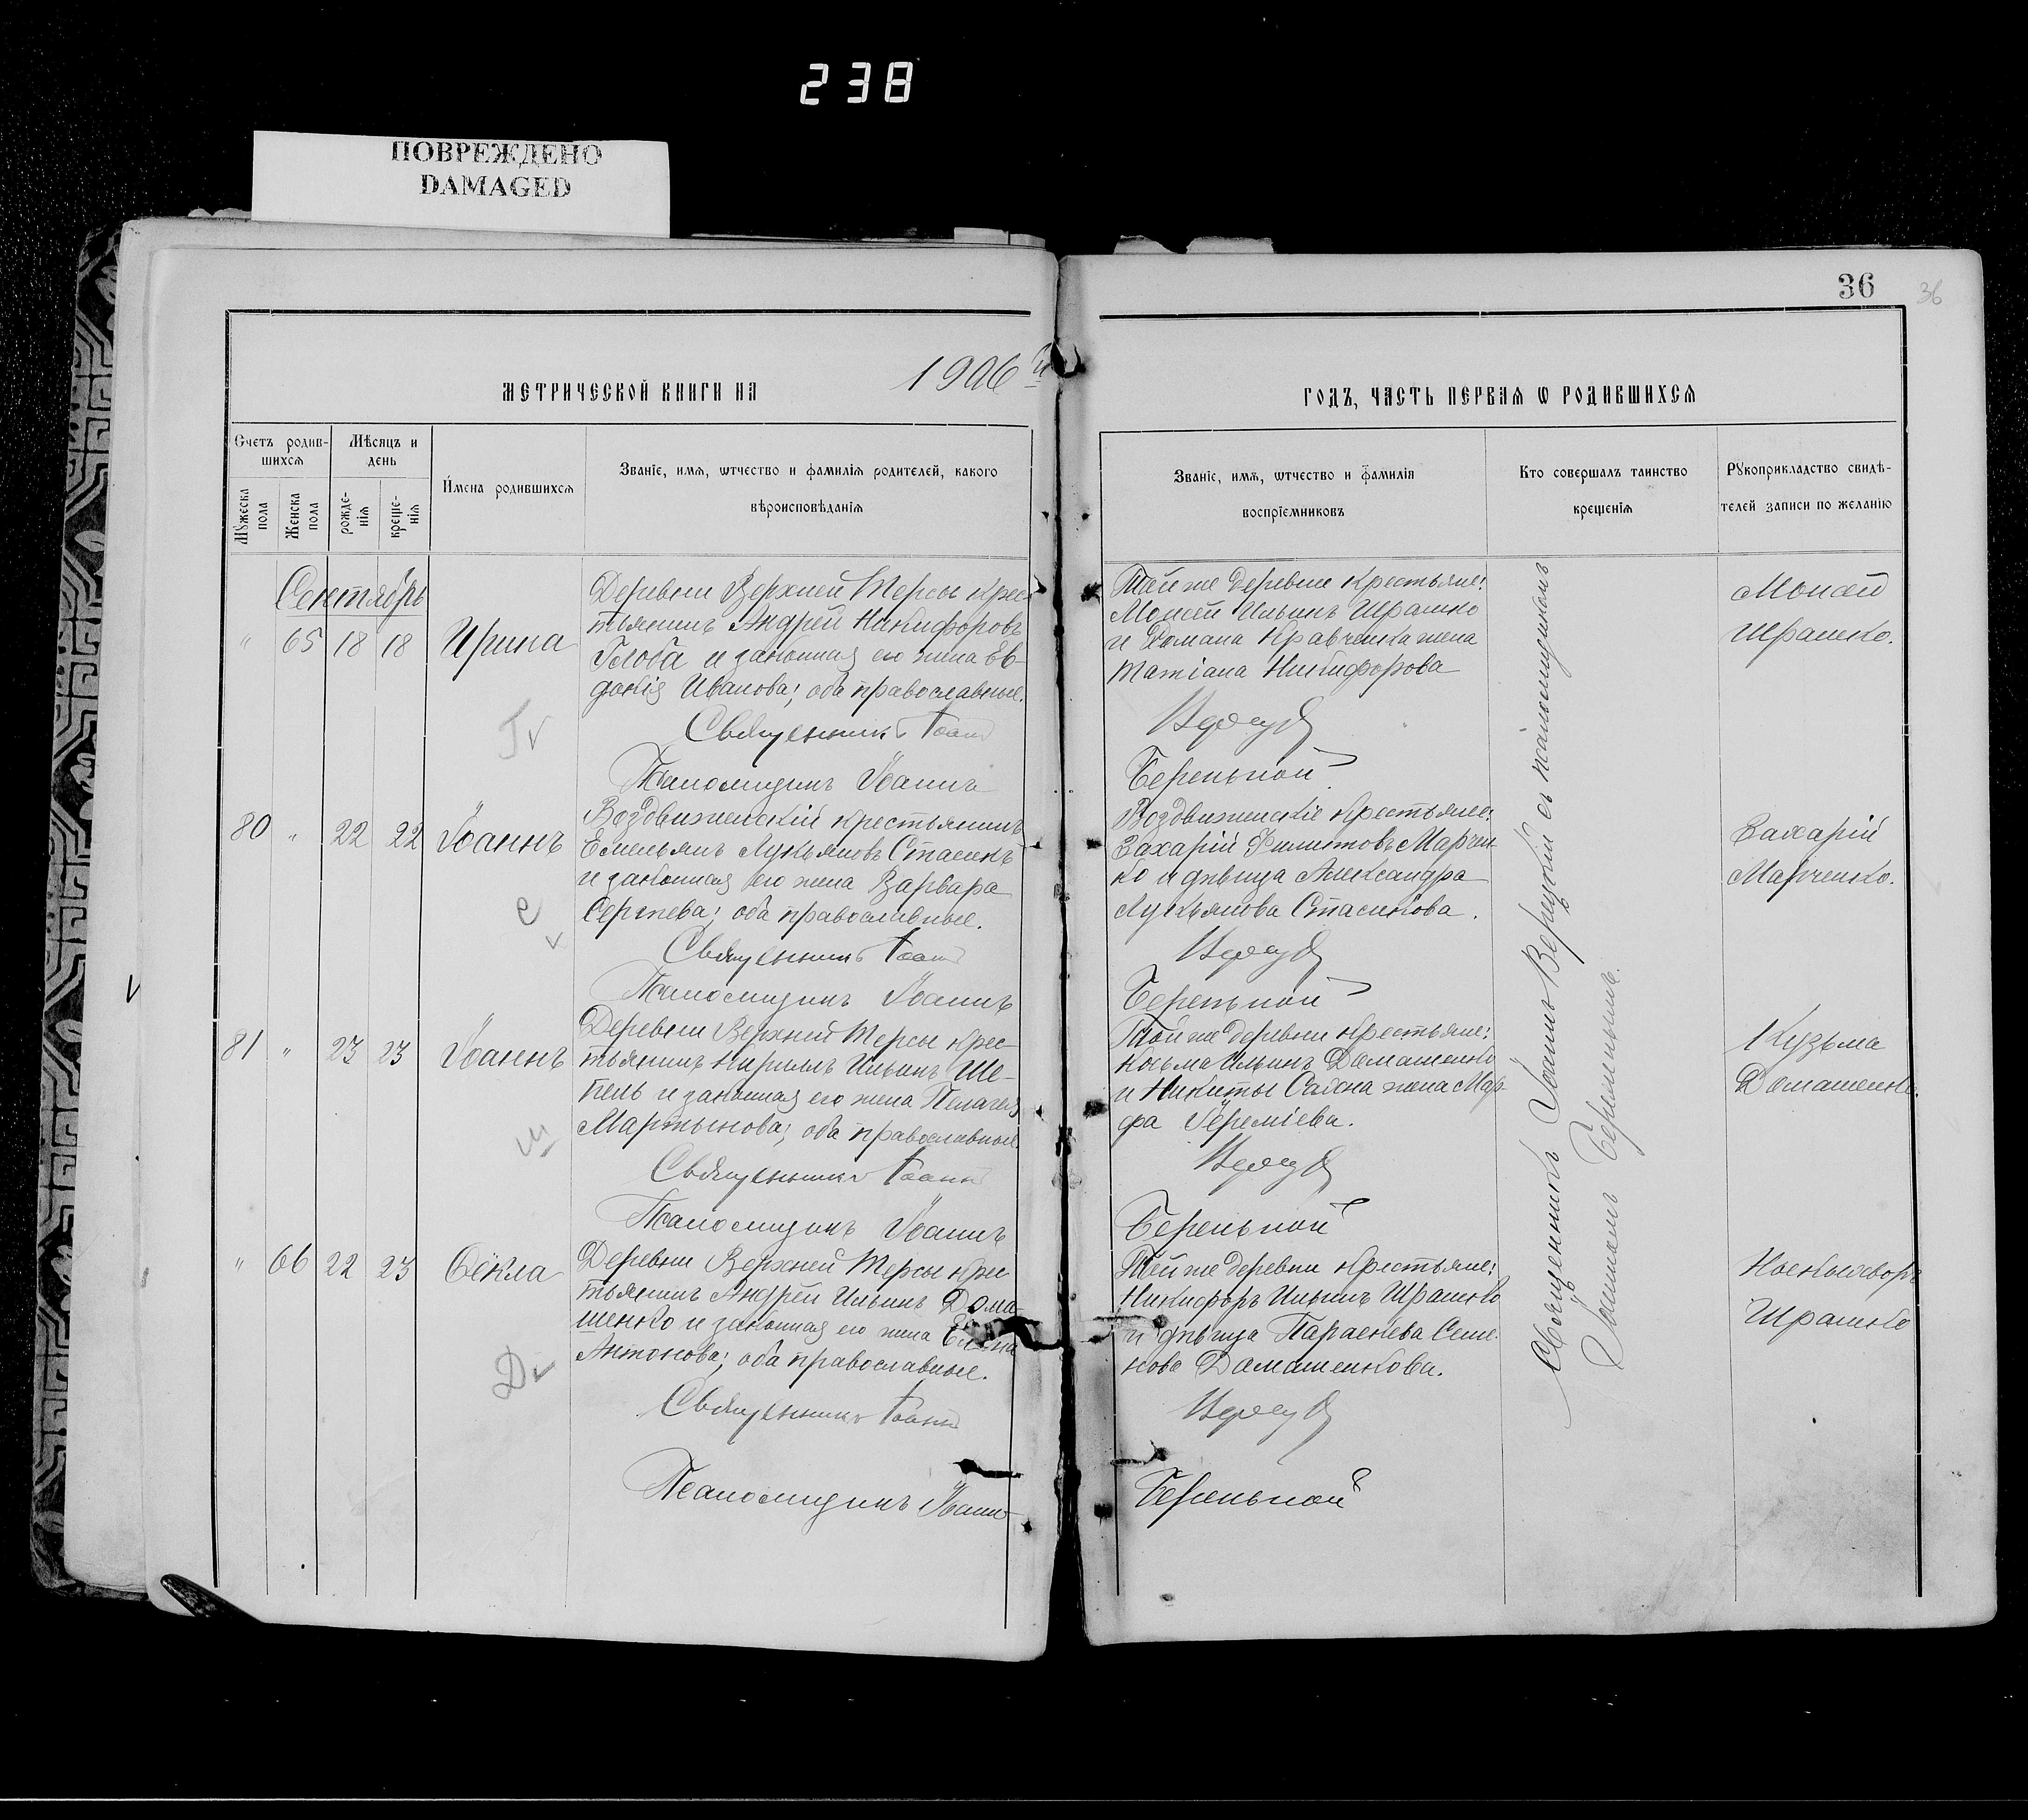 238
ПОВРЕЖДЕНО
DAMAGED
36
36
1906 й
МЕТРИЧЕСКОЙ КНИГИ НА
ГОДЪ, ЧАСТЬ ПЕРВАЯ Ѡ РОДИВШИХСЯ
Счетъ родив-
шихся
Мѣсяцъ и
день
Мужеска
пола
Женска
пола
рожде-
нія
креще-
нія
Имена родившихся
Званіе, имя, ѿчество и фамилія родителей, какого
вѣроисповѣданія
Званіе, имя, ѿчество и фамилія
воспріемниковъ
Кто совершалъ таинство
крещенія
Рукоприкладство свидѣ-
телей записи по желанію
Сентябрь
" 65 18 18 Ирина
Деревни Верхней Терсы крес
тьянинъ Андрей Никифоровъ
Глоба и законная его жена Ев-
докія Иванова; оба православные.
Священникъ Іоаннъ
Псаломщикъ Іоаннъ
Той же деревни крестьяне:
Моисей Ильинъ Ирашко
и Романа Кравченка жена
Татіана Никифорова
Береньной
Моисей
Ирашко.
80 " 22 22 Іоаннъ
Воздвиженскій крестьянинъ
Емельянъ Лукьяновъ Стасенко
и законная его жена Варвара
Сергѣева; оба православные.
Священникъ Іоаннъ
Псаломщикъ Іоаннъ
Воздвиженскіе крестьяне:
Захарій Филиповъ Марчен
ко и дѣвица Александра
Лукьянова Стасенкова.
Береньной
Захарій
Марченко.
81 " 23 23 Іоаннъ
Деревни Верхней Терсы крес-
тьянинъ Кириллъ Ильинъ Ше-
пель и законная его жена Пелагея
Мартынова; оба православные
Священникъ Іоаннъ
Псаломщикъ Іоаннъ
Той же деревни крестьяне:
Косьма Ильинъ Домашенко
и Никиты жена Мар
фа Іереміева.
Береньной
Кузьма
Домашенко.
" 66 22 23 Ѳекла
Деревни Верхней Терсы крес
тьянинъ Андрей Ильинъ Дома-
шенко и законная его жена
Антонова; оба православные.
Священникъ Іоаннъ
Псаломщикъ Іоаннъ
Той же деревни крестьяне:
Никифоръ Ильинъ Ирашко
и дѣвица Параскева Семе-
нова Домашенкова.
Береньной
Ирашко
Священникъ Іоаннъ Верецкій съ псаломщикомъ
Іоанномъ Береньнымъ.